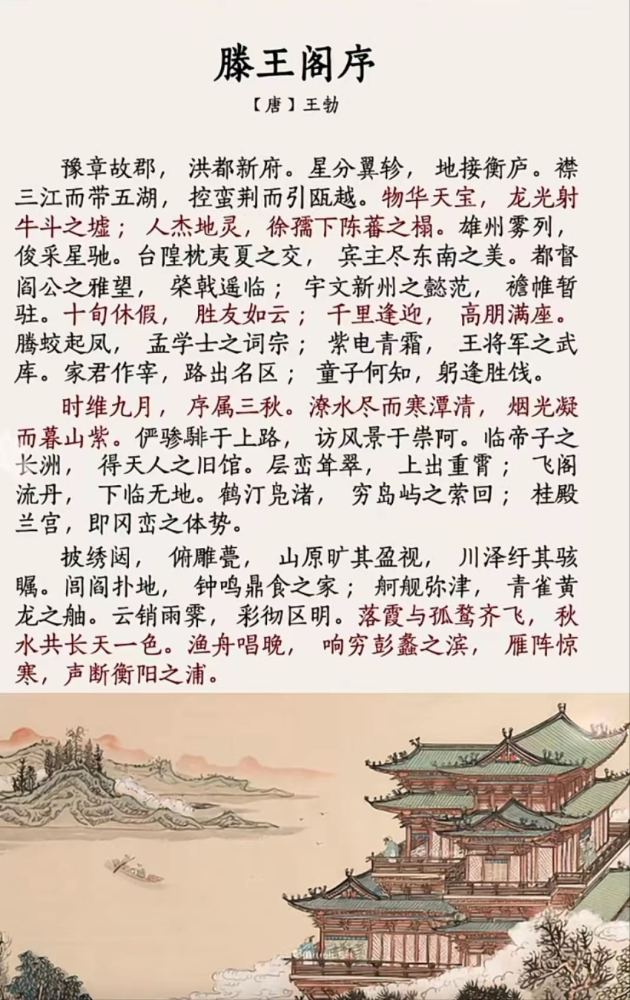 滕王阁序
【唐】王勃
豫章故郡，洪都新府。星分翼轸，地接衡庐。襟
三江而带五湖，控蛮荆而引瓯越。物华天宝，龙光射
牛斗之墟；人杰地灵，徐孺下陈蕃之榻。雄州雾列，
俊采星驰。台隍枕夷夏之交，宾主尽东南之美。都督
阎公之雅望，棨戟遥临；宇文新州之懿范，襜帷暂
驻。十旬休假，胜友如云；千里逢迎，高朋满座。
腾蛟起凤，孟学士之词宗；紫电青霜，王将军之武
库。家君作宰，路出名区；童子何知，躬逢胜饯。
时维九月，序属三秋。潦水尽而寒潭清，烟光凝
而暮山紫。俨骖騑于上路，访风景于崇阿。临帝子之
长洲，得天人之旧馆。层峦耸翠，上出重霄；飞阁
流丹，下临无地。鹤汀凫渚，穷岛屿之萦回；桂殿
兰宫，即冈峦之体势。
披绣闼，俯雕甍，山原旷其盈视，川泽纡其骇
瞩。闾阎扑地，钟鸣鼎食之家；舸舰弥津，青雀黄
龙之舳。云销雨霁，彩彻区明。落霞与孤鹜齐飞，秋
水共长天一色。渔舟唱晚，响穷彭蠡之滨，雁阵惊
寒，声断衡阳之浦。